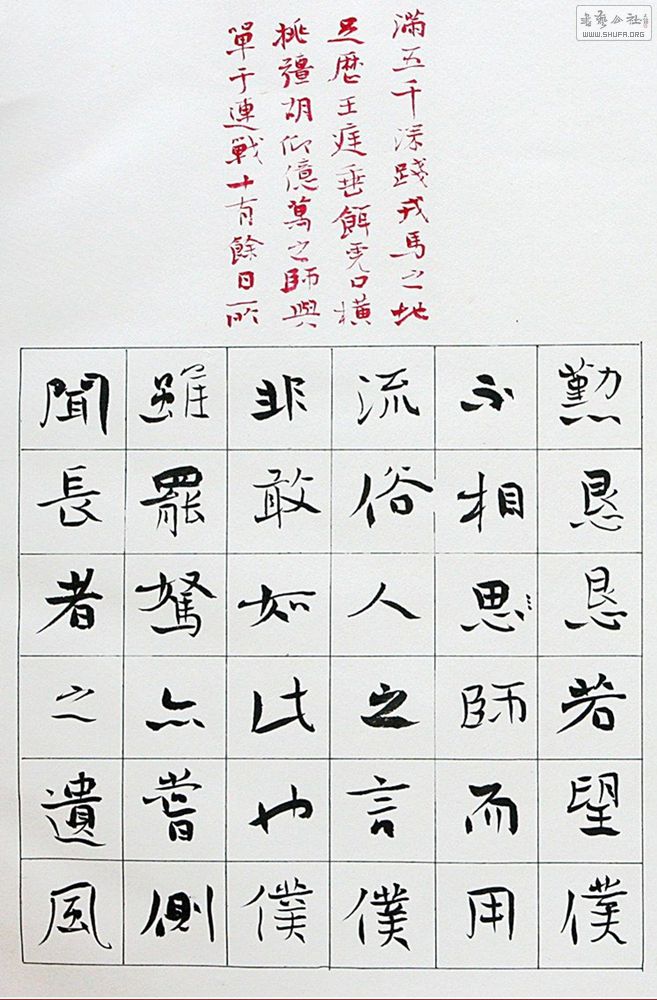 書藝公社
WWW.SHUFA.ORG
滿五千深踐戎馬之地
足歷王庭垂餌虎口橫
挑彊胡仰億萬之師與
單于連戰十有餘日所
懃懇懇若望僕
不相思師而用
流俗人之言僕
非敢如此也僕
雖罷駑亦嘗側
聞長者之遺風